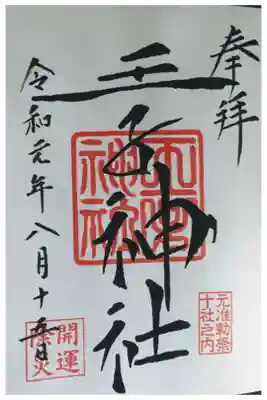 奉拝
王子神社
王子
神社
元准勅祭
十社之内
令和元年八月十五日
開運
除災